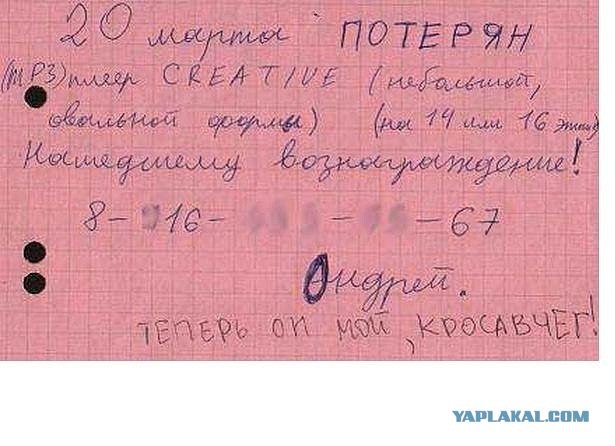 20 марта ПОТЕРЯН
(mp3) плеер CREATIVE (небольшой,
овальной формы) (на 14 или 16 этаж)
Нашедшему вознаграждение!
8- 916- - - 67
Андрей.
ТЕПЕРЬ ОН МОЙ, КРОСАВЧЕГ!
YAPLAKAL.COM